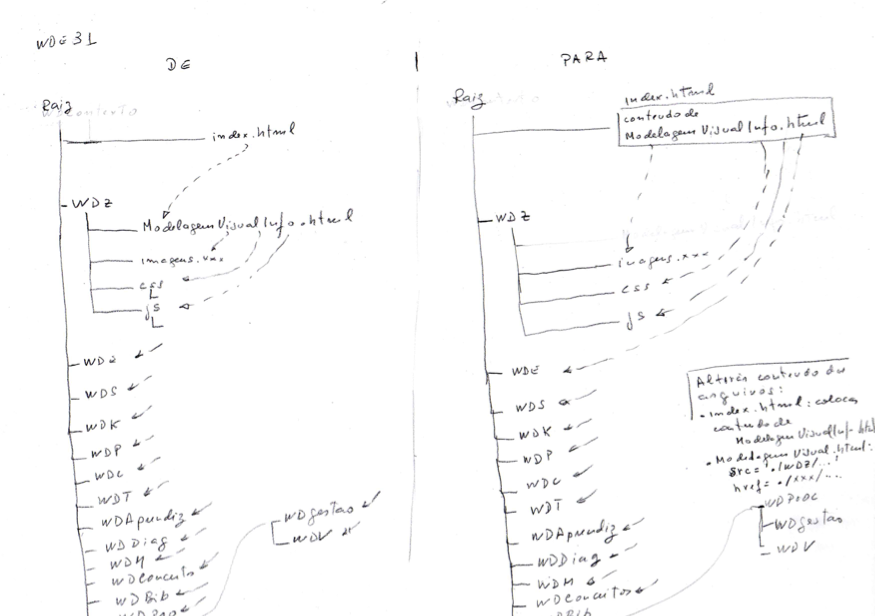 WDE31
DE
Raiz
index.html
WDZ
Modelagem Visual Info.html
imagens.xxx
css
js
WDS
WDK
WDP
WDC
WDT
WDAprendiz
WDDiag
WDM
WDConceitos
WDBib
WDgestao
WDV
PARA
Raiz
index.html
conteudo de
Modelagem Visual Info.html
WDZ
imagens.xxx
css
js
WDE
WDS
WDK
WDP
WDC
WDT
WDAprendiz
WDDiag
WDM
WDConceitos
WDBib
Alterar conteudo dos
arquivos:
• index.html: colocar
conteudo de
Modelagem VisualInfo.html
• Modelagem Visual.html:
src= './WDZ/...'
href= './xxx/...
WDProc
WDgestao
WDV